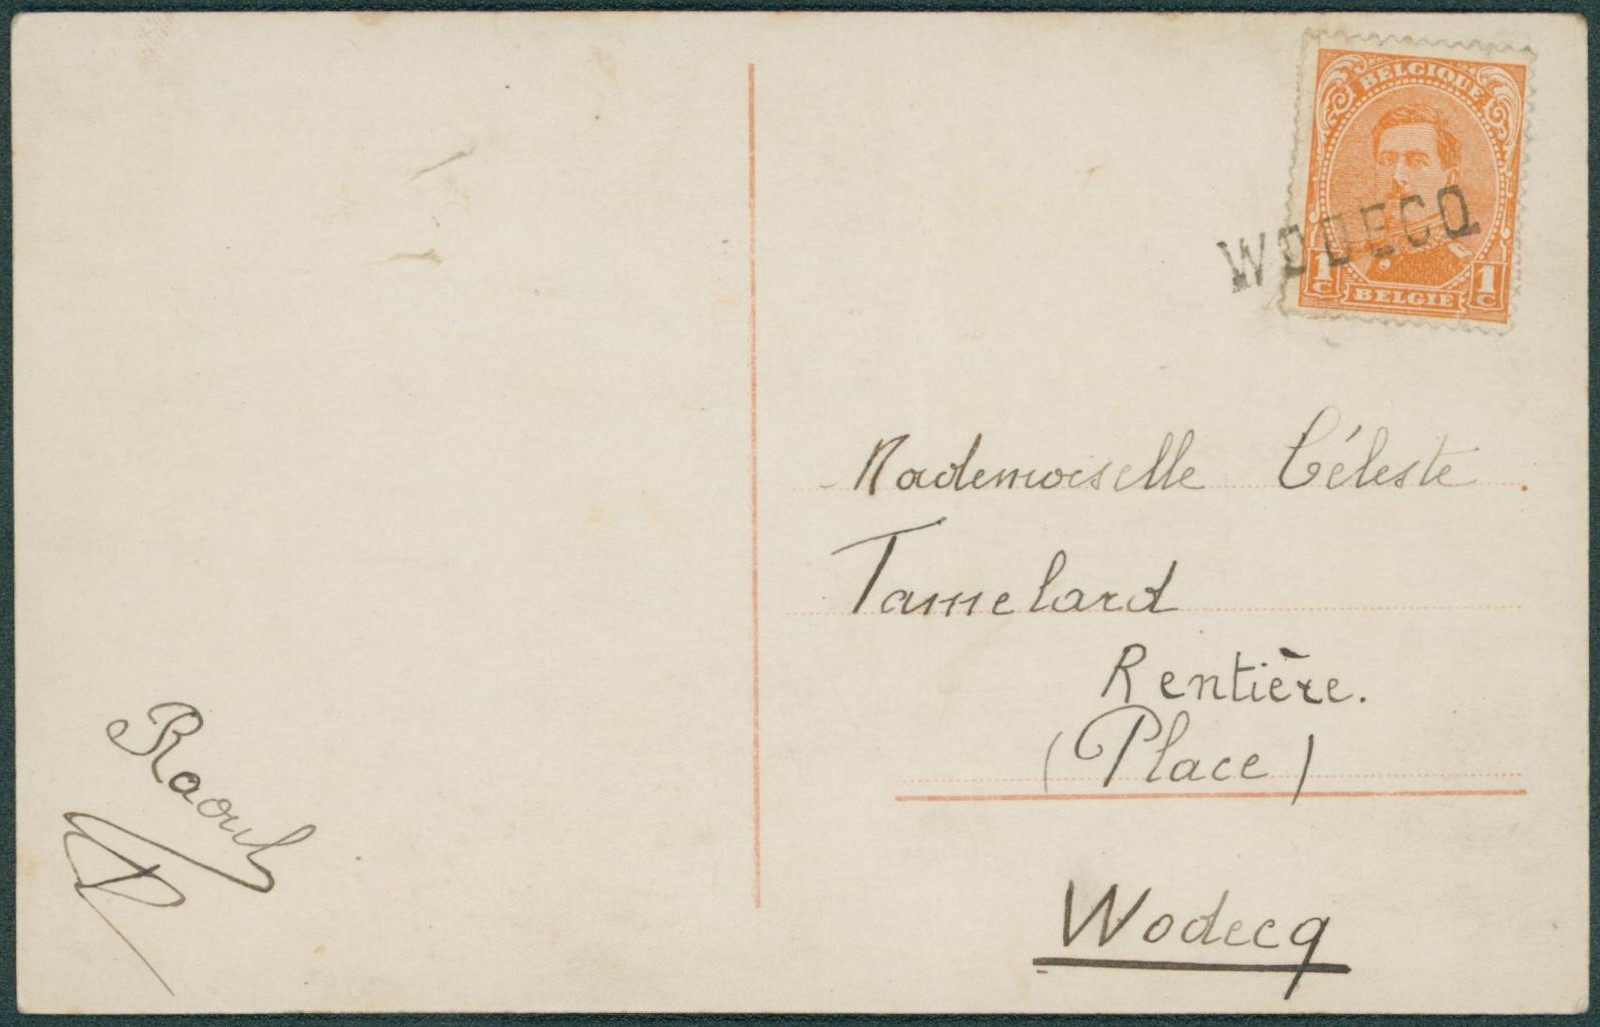 BELGIQUE
WODECQ
1 C 1 C
BELGIE
Mademoiselle Céleste
Tamelard
Rentière.
(Place)
Wodecq
Raoul